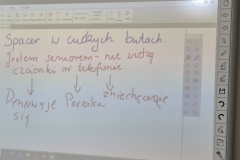 Spacer w cudzych butach.
Jestem seniorem - nie widzę
czcionki w telefonie
Denerwuje Porażka zniechęcenie
się